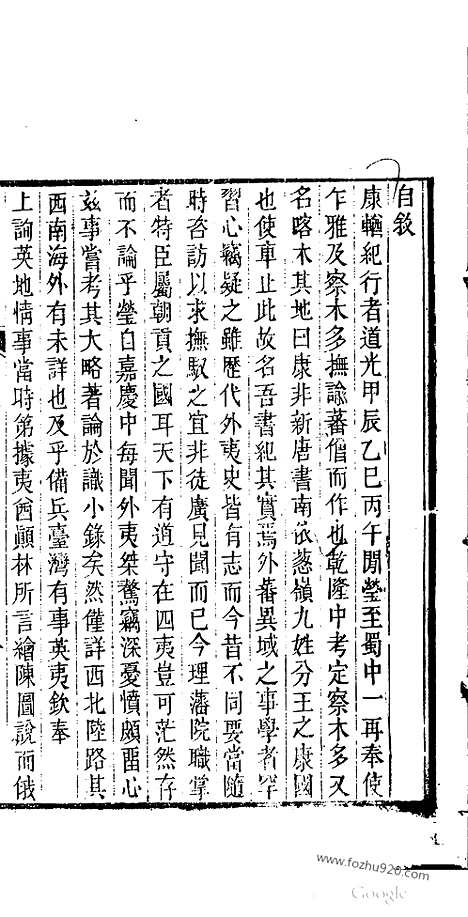 自敘
康輶紀行者道光甲辰乙巳丙午閒瑩至蜀中一再奉使
乍雅及察木多撫諭蕃僧而作也乾隆中考定察木多又
名喀木其地曰康非新唐書南依葱嶺九姓分王之康國
也使車止此故名吾書紀其實焉外蕃異域之事學者罕
習心竊疑之雖歷代外夷史皆有志而今昔不同要當隨
時咨訪以求撫馭之宜非徒廣見聞而已今理藩院職掌
者特臣屬朝貢之國耳天下有道守在四夷豈可茫然存
而不論乎瑩自嘉慶中每聞外夷桀驁竊深憂憤頗畱心
兹事嘗考其大略著論於識小錄矣然僅詳西北陸路其
西南海外有未詳也及乎備兵臺灣有事英夷欽奉
上諭英地情事當時第據夷酋顛林所言繪陳圖說而俄
www.fozhu920.com
Google